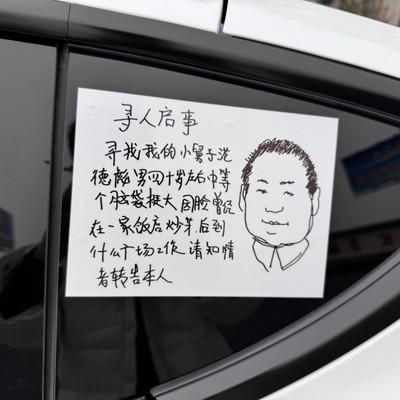 寻人启事
寻找我的小舅子范
德彪男四十岁左右中等
个脑袋挺大圆脸曾经
在一家饭店炒菜后到
什么广场工作请知情
者转告本人